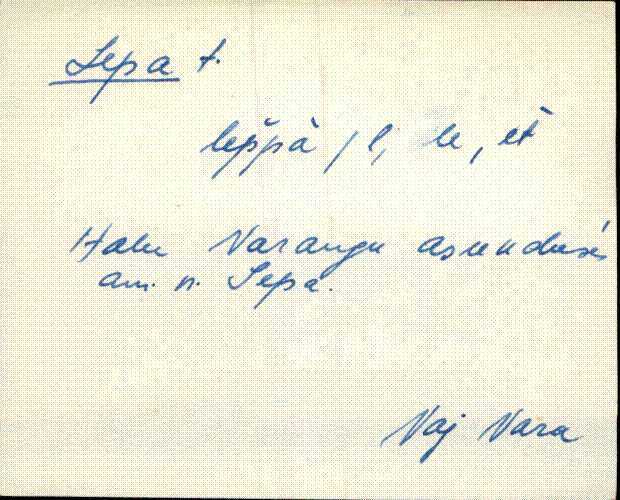 Lepa t.
lep̆pà / l, le, et̄
Halu Varangu asunduses
am. n. Lepa.
Vaj Vara